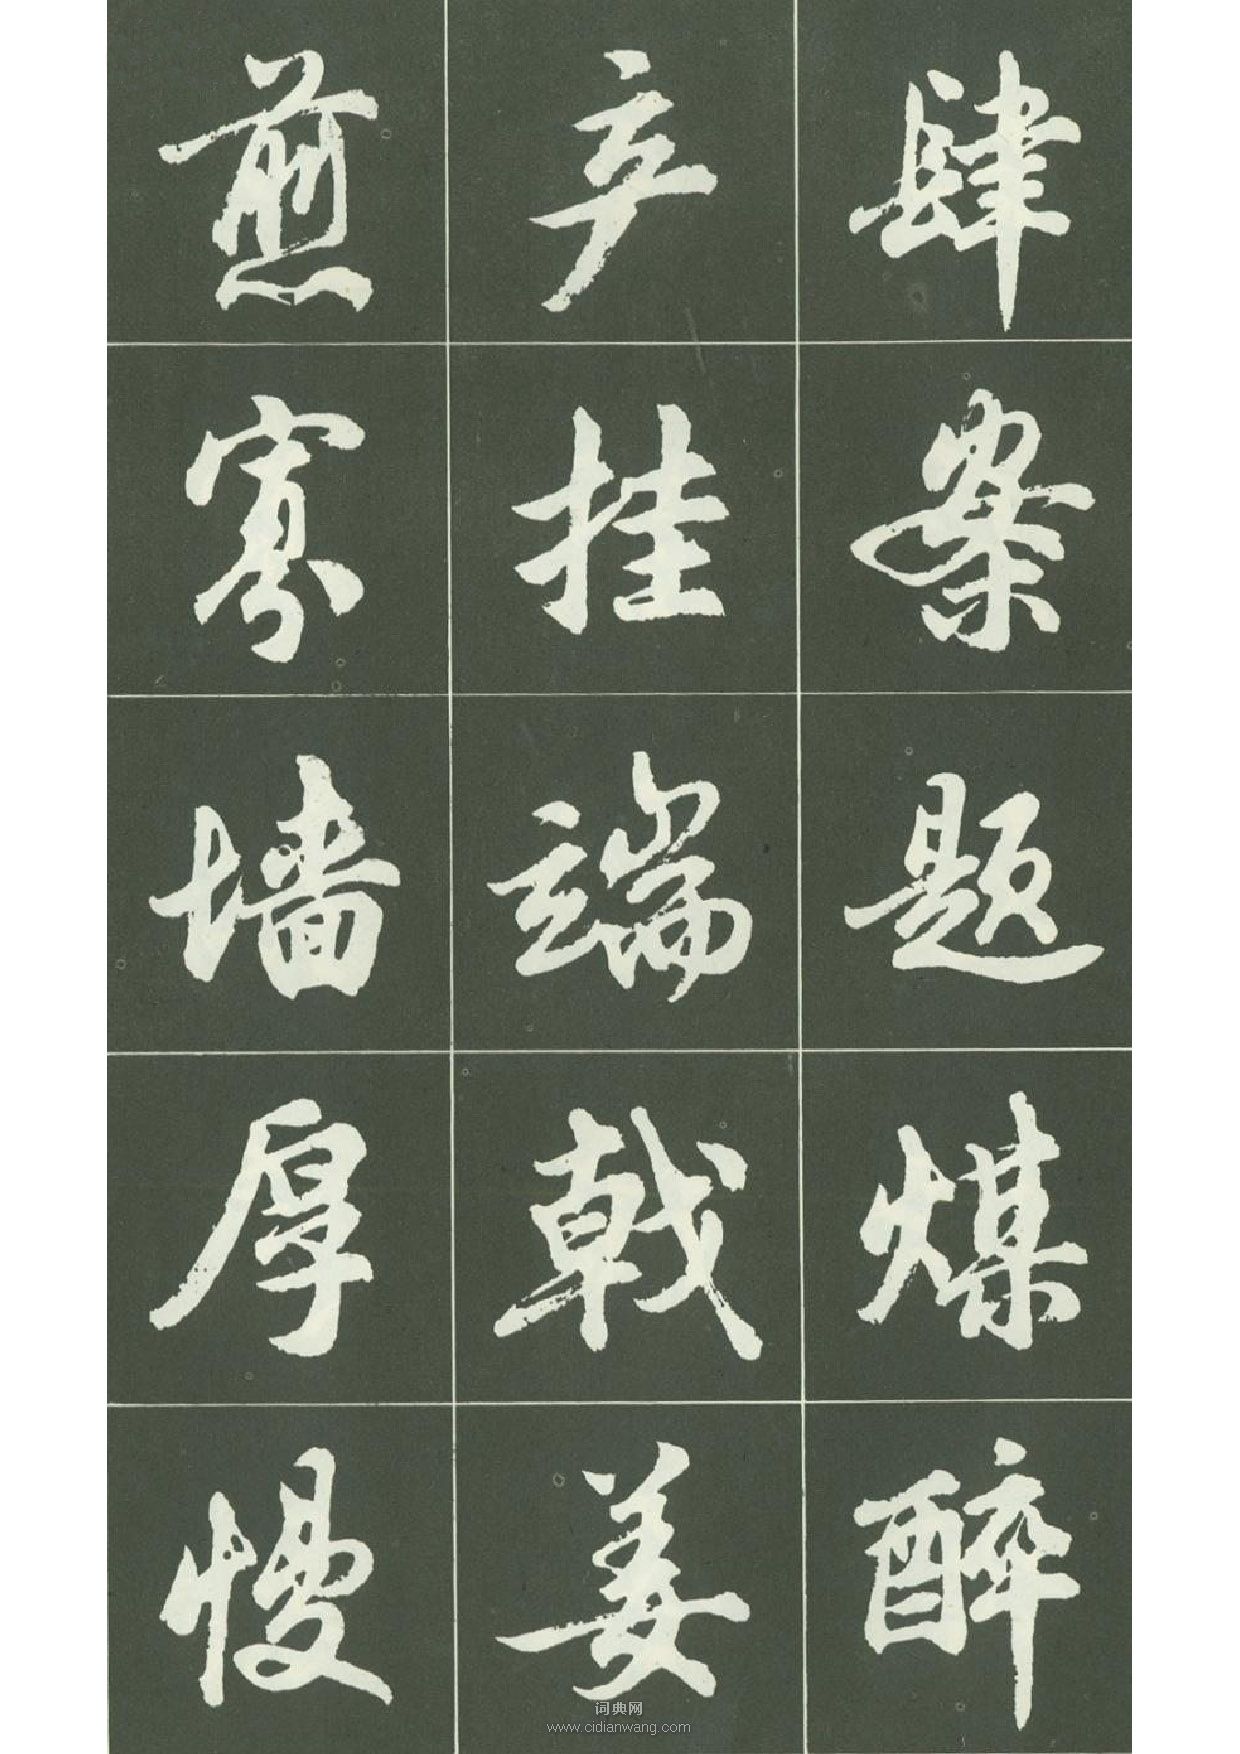 肆案题煤醉
产挂端戟姜
煎寡墙厚慢
词典网
www.cidianwang.com